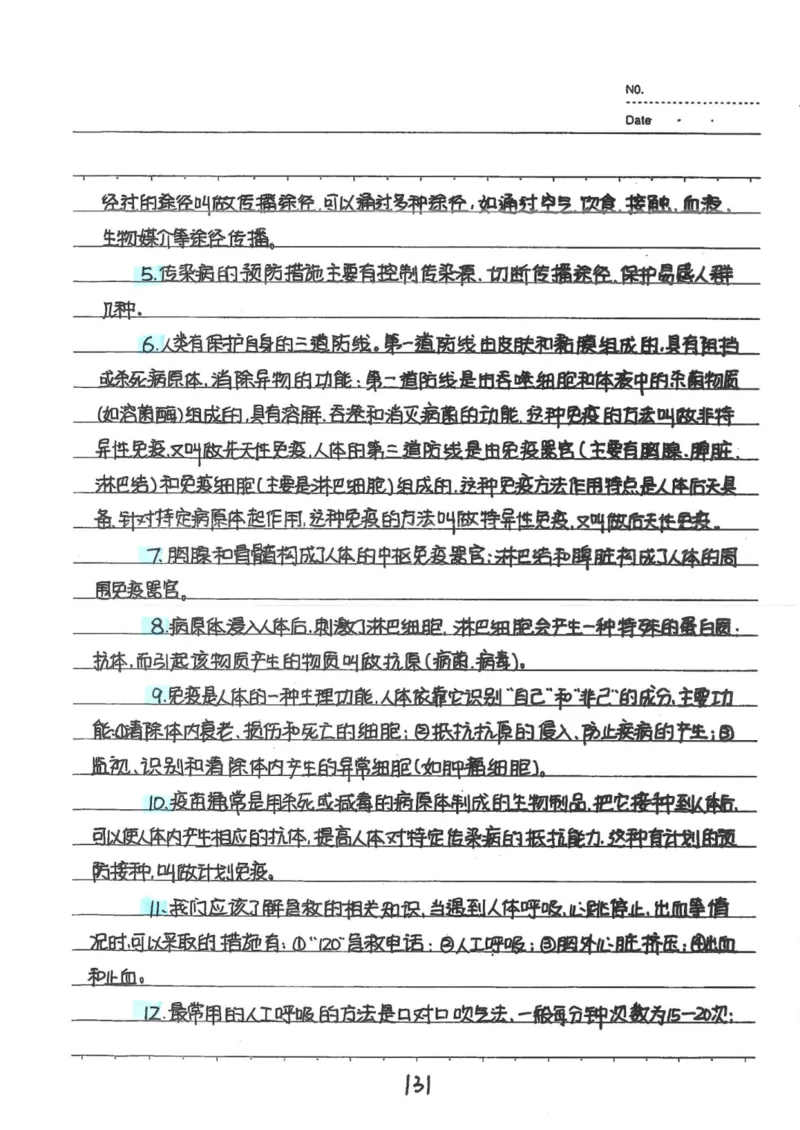 NO.
Date
经过的途径叫做传播途径,可以通过多种途径,如通过空气、饮食、接触、血液、
生物媒介等途径传播。
5.传染病的预防措施主要有控制传染源、切断传播途径、保护易感人群
几种.
6.人类有保护自身的三道防线。第一道防线由皮肤和黏膜组成的,具有阻挡
或杀死病原体,消除异物的功能;第二道防线是由吞噬细胞和体液中的杀菌物质
(如溶菌酶)组成的,具有溶解、吞噬和消灭病菌的功能,这种免疫的方法叫做非特
异性免疫,又叫做先天性免疫,人体的第三道防线是由免疫器官(主要有胸腺、脾脏、
淋巴结)和免疫细胞(主要是淋巴细胞)组成的,这种免疫方法作用特点是人体后天具
备,针对特定病原体起作用,这种免疫的方法叫做特异性免疫,又叫做后天性免疫。
7.胸腺和骨髓构成了人体的中枢免疫器官;淋巴结和脾脏构成了人体的周
围免疫器官。
8.病原体侵入人体后,刺激了淋巴细胞,淋巴细胞会产生一种特殊的蛋白质:
抗体,而引起该物质产生的物质叫做抗原(病菌、病毒)。
9.免疫是人体的一种生理功能,人体依靠它识别"自己"和"非己"的成分,主要功
能:①清除体内衰老、损伤和死亡的细胞;②抵抗抗原的侵入、防止疾病的产生;③
监视、识别和清除体内产生的异常细胞(如肿瘤细胞)。
10.疫苗通常是用杀死或减毒的病原体制成的生物制品,把它接种到人体后,
可以使人体内产生相应的抗体,提高人体对特定传染病的抵抗能力,这种有计划的预
防接种,叫做计划免疫。
11.我们应该了解急救的相关知识,当遇到人体呼吸,心跳停止,出血等情
况时,可以采取的措施有:①"120"急救电话;②人工呼吸;③胸外心脏挤压;④出血
和止血。
12.最常用的人工呼吸的方法是口对口吹气法,一般每分钟次数为15—20次;
131